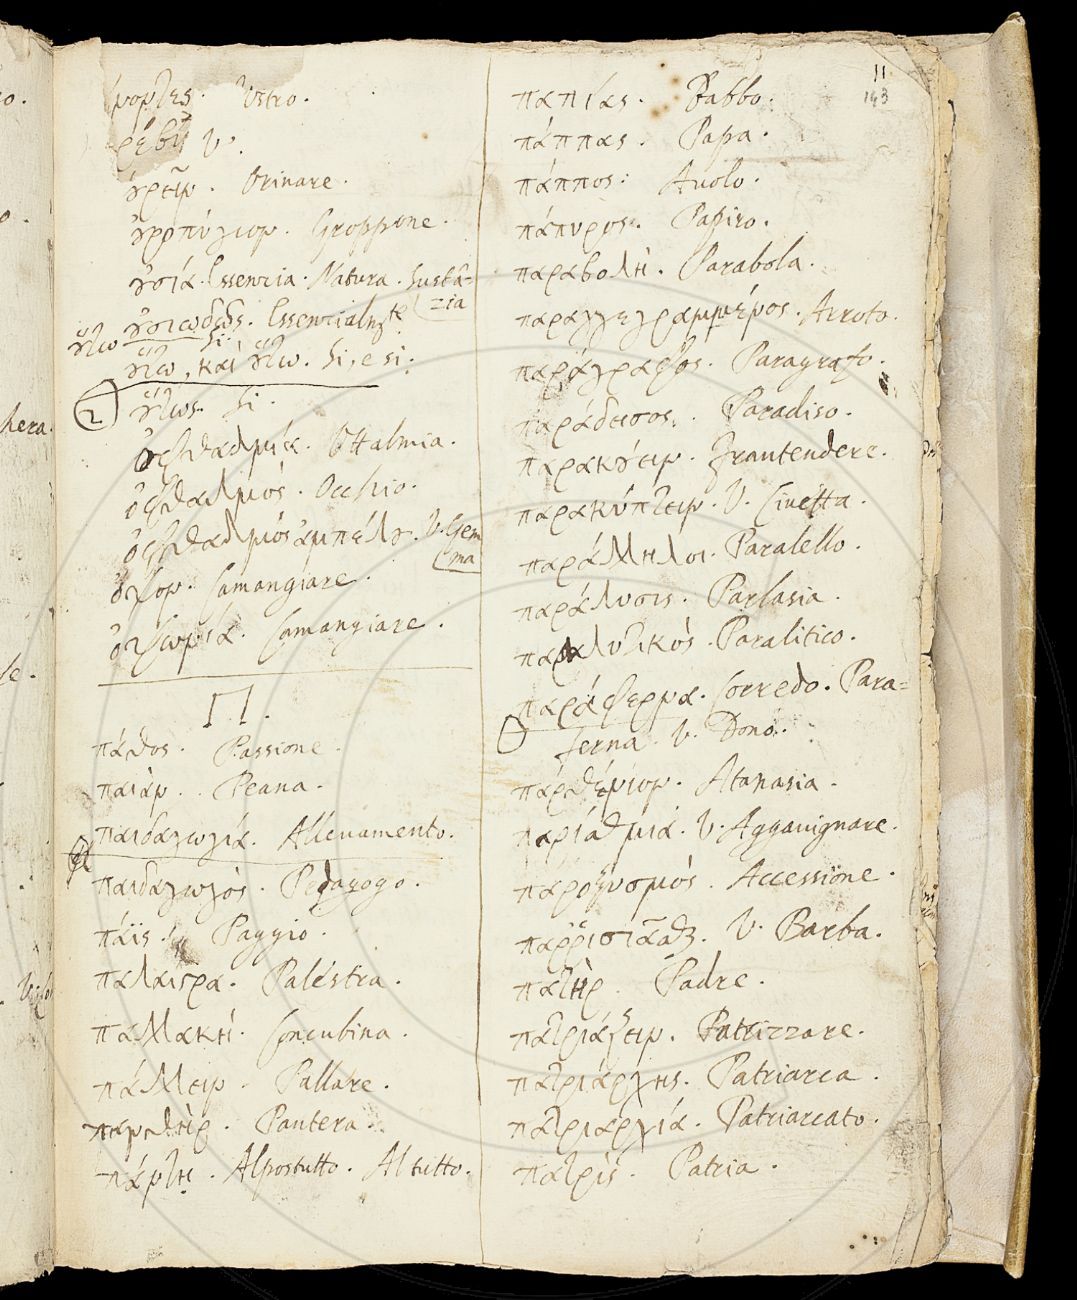 11
143
Ostro.
V.
ȣ̓ρεῖν. Orinare.
ȣ̓ροπύγιον. Groppone.
ȣ̓σιά. Essenzia. Natura. Sustã-
zia
ȣ̓σιωδῶς. Essenzialmte
ȣ̔́τω Si.
ȣ̔́τω, καὶ ȣ̔́τω. Si, e si.
2
ȣ̔́τως. Si.
ὀφθαλμία. Ottalmia.
ὀφθαλμός. Occhio.
ὀφθαλμός ἀμπέλȣ. V. Gem
ma
ὄψον. Camangiare.
ὀψωνιά. Camangiare.
Π.
πάθος. Passione.
παιὰν. Peana.
παιδαγωγιά. Allevamento.
παιδαγωγὸς. Pedagogo.
πάις. Paggio.
παλαιϛρα. Palestra.
παλλακή. Concubina.
πάλλειν. Pallare.
πανθὴρ. Pantera.
πάντῃ. Alpostutto. Al tutto.
παπίας. Babbo.
πάππας. Papa.
πάππος. Avolo.
πάπυρος. Papiro.
παραβολή. Parabola.
παραγγεγραμμένος. Arroto.
παράγραφος. Paragrafo.
παράδεισος. Paradiso.
παρακȣ́ειν. Frantendere.
παρακύπτειν. V. Civetta.
παράλληλοι. Paralello.
παράλυσις. Parlasia.
παραλυτικός. Paralitico.
παράφερνα. Corredo. Para=
ferna. V. Dono.
παρθένιον. Atanasia.
παρίαθμιά. V. Aggavignare.
παροξυσμός. Accessione.
V. Barba.
πατὴρ. Padre.
πατριάζειν. Patrizzare.
πατριάρχης. Patriarca.
πατριαρχιά. Patriarcato.
πατρίς. Patria.